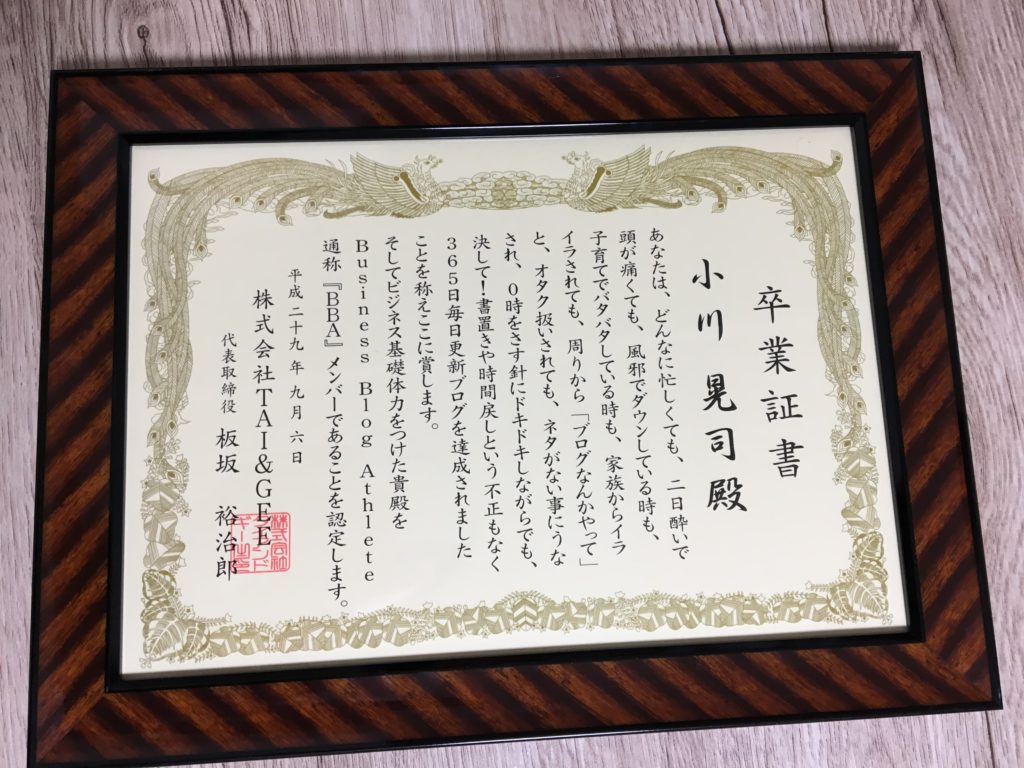 卒業証書
小川晃司殿
あなたは、どんなに忙しくても、二日酔いで
頭が痛くても、風邪でダウンしている時も、
子育てでバタバタしている時も、家族からイラ
イラされても、周りから「ブログなんかやって」
と、オタク扱いされても、ネタがない事にうな
され、0時をさす針にドキドキしながらでも、
決して！書置きや時間戻しという不正もなく
365日毎日更新ブログを達成されました
ことを称えここに賞します。
そしてビジネス基礎体力をつけた貴殿を
Business Blog Athlete
通称『BBA』メンバーであることを認定します。
平成二十九年九月六日
株式会社TAI&GEE
代表取締役 板坂 裕治郎
株式会社